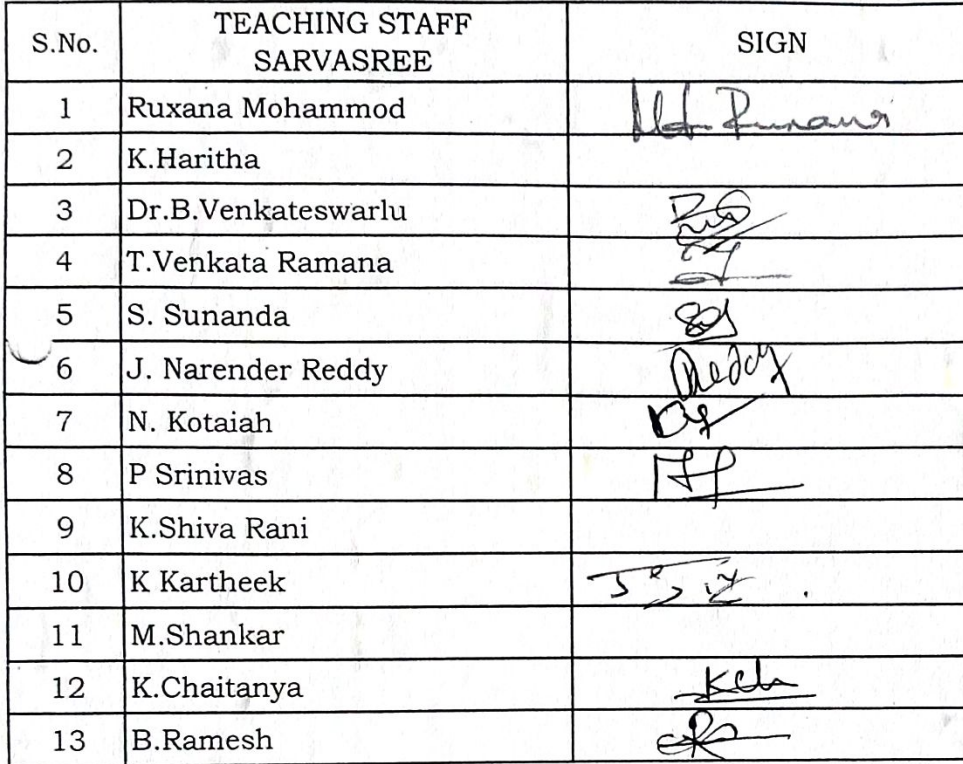 S.No. TEACHING STAFF SIGN
SARVASREE
1 Ruxana Mohammod
2 K.Haritha
3 Dr.B.Venkateswarlu
4 T.Venkata Ramana
5 S. Sunanda
6 J. Narender Reddy Reddy
7 N. Kotaiah
8 P Srinivas
9 K.Shiva Rani
10 K Kartheek
11 M.Shankar
12 K.Chaitanya
13 B.Ramesh